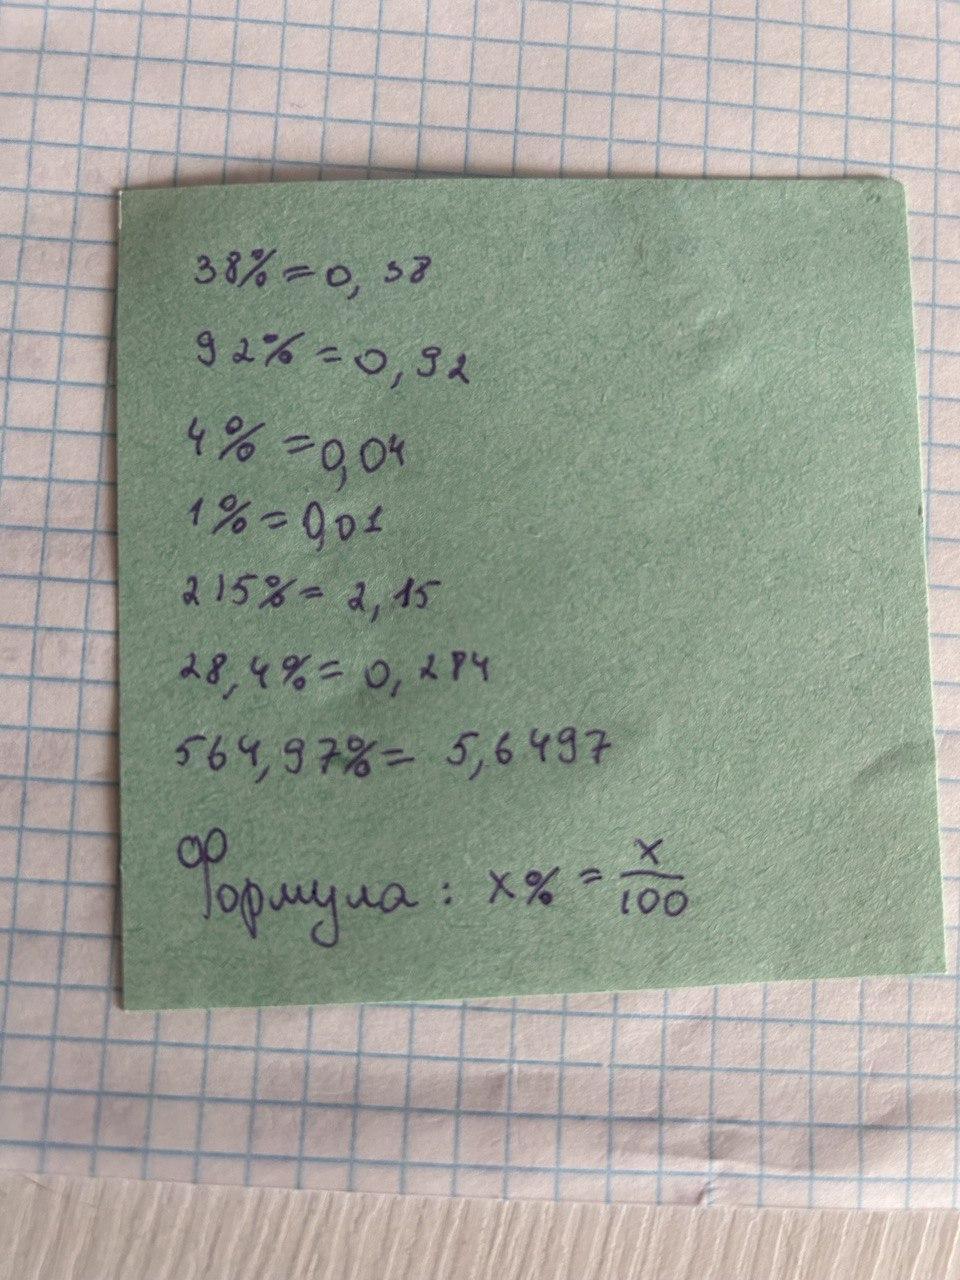 38% = 0,38
92% = 0,92
4% = 0,04
1% = 0,01
215% = 2,15
28,4% = 0,284
564,97% = 5,6497
Формула : x% = x/100